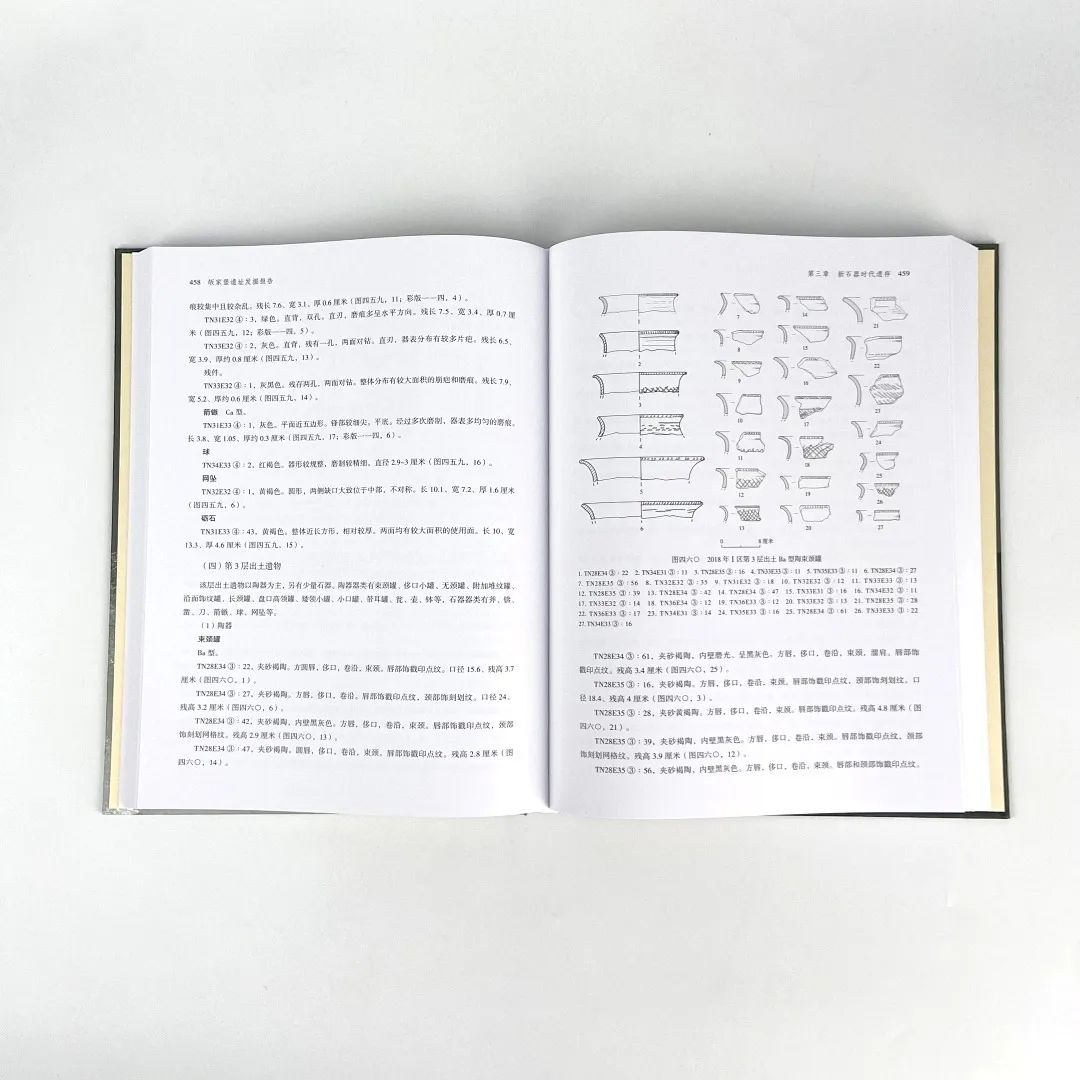 458 皈家堡遗址发掘报告
痕较集中且较杂乱。残长 7.6、宽 3.1、厚 0.6 厘米（图四五九，11；彩版一一四，4）。
TN31E32④：3，绿色。直背，双孔。直刃，磨痕多呈水平方向。残长 7.5、宽 3.4、厚 0.7 厘
米（图四五九，12；彩版一一四，5）。
TN33E32④：2，灰色。直背，残有一孔，两面对钻。直刃，器表分布有较多片疤。残长 6.5、
宽 3.9、厚约 0.8 厘米（图四五九，13）。
残件。
TN33E32④：1，灰黑色。残存两孔，两面对钻。整体分布有较大面积的崩疤和磨痕。残长 7.9、
宽 5.2、厚约 0.6 厘米（图四五九，14）。
箭镞 Ca 型。
TN31E33④：1，灰色。平面近五边形。锋部较细尖，平底。经过多次磨制，器表多均匀的磨痕。
长 3.8、宽 1.05、厚约 0.3 厘米（图四五九，17；彩版一一四，6）。
球
TN34E33④：2，红褐色。器形较规整，磨制较精细。直径 2.9~3 厘米（图四五九，16）。
网坠
TN32E32④：1，黄褐色。圆形，两侧缺口大致位于中部，不对称。长 10.1、宽 7.2、厚 1.6 厘米
（图四五九，6）。
砺石
TN31E33④：43，黄褐色。整体近长方形，相对较厚。两面均有较大面积的使用面。长 10、宽
13.3、厚 4.6 厘米（图四五九，15）。
（四）第 3 层出土遗物
该层出土遗物以陶器为主，另有少量石器。陶器器类有束颈罐、侈口小罐、无颈罐、附加堆纹罐、
沿面饰纹罐、长颈罐、盘口高领罐、矮领小罐、小口罐、带耳罐、瓮、壶、钵等，石器器类有斧、锛、
凿、刀、箭镞、球、网坠等。
（1）陶器
束颈罐
Ba 型。
TN28E34③：22，夹砂褐陶。方圆唇，侈口，卷沿，束颈。唇部饰戳印点纹。口径 15.6、残高 3.7
厘米（图四六〇，1）。
TN28E34③：27，夹砂褐陶。方唇，侈口，卷沿，束颈。唇部饰戳印点纹，颈部饰刻划纹。口径 24、
残高 3.2 厘米（图四六〇，6）。
TN28E34③：42，夹砂褐陶，内壁黑灰色。方唇，侈口，卷沿，束颈。唇部饰戳印点纹，颈部
饰刻划网格纹。残高 2.9 厘米（图四六〇，13）。
TN28E34③：47，夹砂褐陶。圆唇，侈口，卷沿，束颈。唇部饰戳印点纹。残高 2.8 厘米（图
四六〇，14）。
第三章 新石器时代遗存 459
1
2
3
4
5
6
7
8
9
10
11
12
13
14
15
16
17
18
19
20
21
22
23
24
25
26
27
0 8 厘米
图四六〇 2018 年 I 区第 3 层出土 Ba 型陶束颈罐
1. TN28E34③：22 2. TN34E31③：11 3. TN28E35③：16 4. TN33E33③：11 5. TN35E33③：11 6. TN28E34③：27
7. TN28E35③：56 8. TN32E32③：35 9. TN31E32③：18 10. TN32E32③：12 11. TN33E33③：13
12. TN28E35③：39 13. TN28E34③：42 14. TN28E34③：47 15. TN33E31③：16 16. TN34E32③：11
17. TN33E32③：14 18. TN36E34③：12 19. TN36E33③：12 20. TN33E32③：13 21. TN28E35③：28
22. TN36E33③：17 23. TN34E31③：14 24. TN35E33③：16 25. TN28E34③：61 26. TN33E33③：22
27. TN34E33③：16
TN28E34③：61，夹砂褐陶，内壁磨光，呈黑灰色。方唇，侈口，卷沿，束颈，溜肩。唇部饰
戳印点纹。残高 3.4 厘米（图四六〇，25）。
TN28E35③：16，夹砂褐陶。方唇，侈口，卷沿，束颈。唇部饰戳印点纹，颈部饰刻划纹。口
径 18.4、残高 4 厘米（图四六〇，3）。
TN28E35③：28，夹砂黄褐陶。方唇，侈口，卷沿，束颈。唇部饰戳印点纹。残高 4.8 厘米（图
四六〇，21）。
TN28E35③：39，夹砂褐陶，内壁黑灰色。方唇，侈口，卷沿，束颈。唇部饰戳印点纹，颈部
饰刻划网格纹。残高 3.9 厘米（图四六〇，12）。
TN28E35③：56，夹砂褐陶，内壁黑灰色。方唇，侈口，卷沿，束颈。唇部和颈部饰戳印点纹。